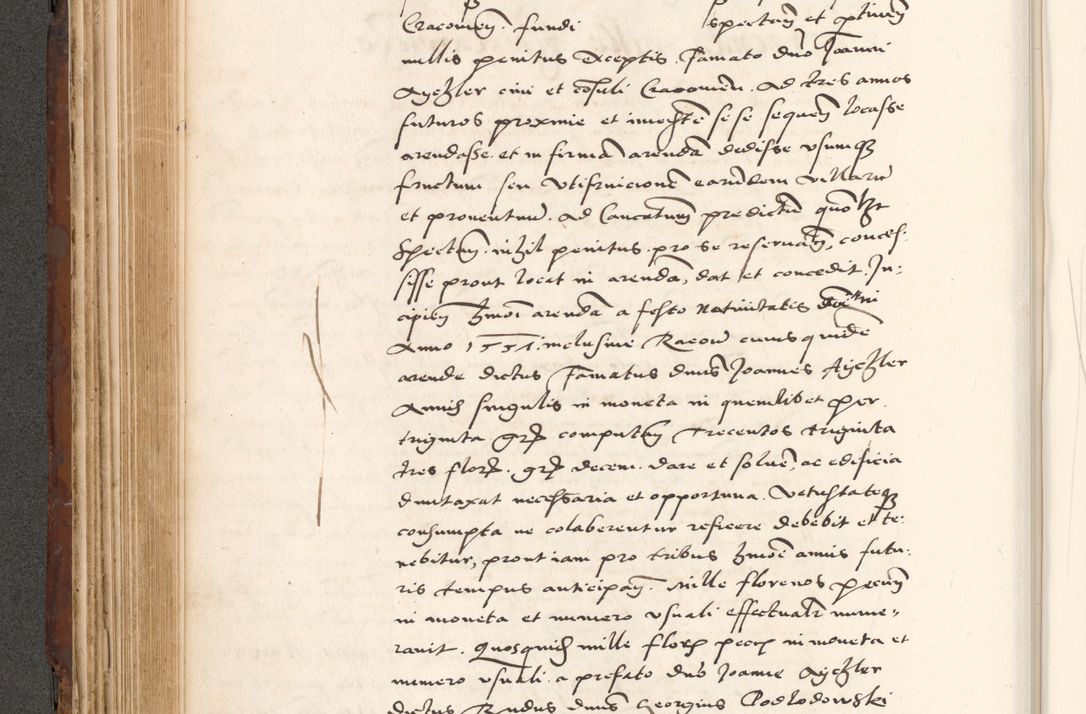 Cracovien. fundi spectan et ptinen
nullis penitus exceptis. Famato dno Joanni
Aychler civi et cosuli Cracovien. Ad tres annos
futuros proxime et imediate se se sequen locasse
arendasse. et in firmam arendam dedisse usumq3
fructum seu utifruicione earundem villaru
et proventuu. Ad Cancellarium predictu quo lzt
Spectan. nihil penitus pro se reservan, conces-
sisse prout locat in arendam, dat et concedit. In-
cipien hmoi arenda a festo Nativitatis Domini
Anno 1551. inclusive Racou cuius quide
arende dictus Famatus dnus Joannes Aychler
Annis singulis in moneta in quemlibet per
triginta gr computan trecentos triginta
tres flor. gr decem. dare et solve, ac edificia
dumtaxat necessaria et opportuna. Vetustateq3
consumpta ne colaberentur reficere debebit et te-
nebitur, prout iam pro tribus hmoi annis futu-
ris tempus anticipan. Mille florenos pecun
in moneta et numero usuali effectualr nume-
ravit. Quosquid mille flor pecu in moneta et
numero usuali a prefato dno Joanne Aychler
dictus Rndus dnus Georgius Podlodowski